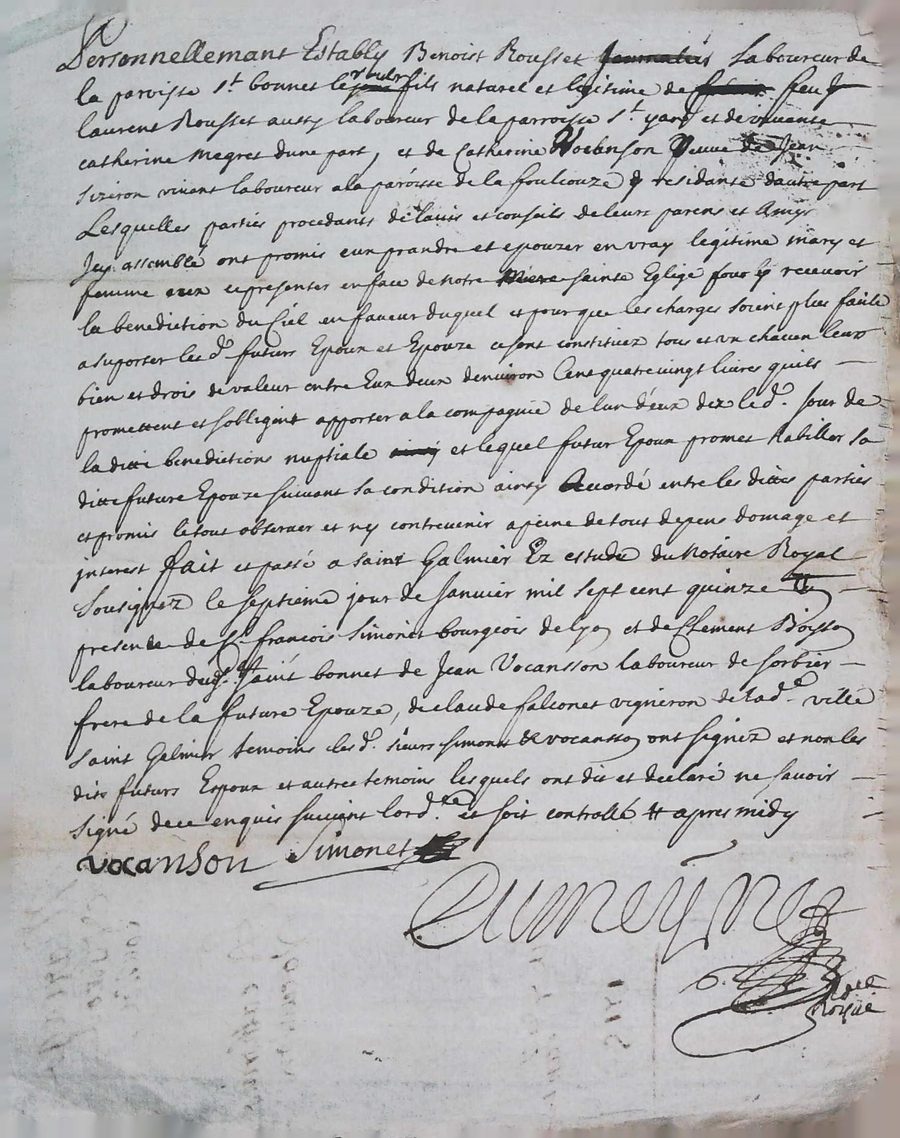 Personnellemant Establÿ Benoist Rousset Journalié Laboureur de
la paroisse St. bonnet les oules fils naturel et legitime de feu
laurent Rousset aussy laboureur de la parroisse St. yard et de vivante
catherine Megret dune part, et de Catherine Vocanson Veuve de Jean
Sizeron vivant laboureur a la paroisse de la foulouze y residante dautre part
Lesquelles parties procedants de lavis et conseils de leurs parens et Amys
Jcy assemblé ont promis eux prandre et epouzer en vray legitime mary et
femme eux epresenter en face de notre Mere sainte Eglize pour y recevoir
la benediction du Ciel en faveur duquel et pour que les charges soient plus facile
a suporter les d. futurs Epoux et Epouze ce sont constituez tous et un chacun leurs
bien et drois de valeur entre Eux deux denviron Cent quatre vingt livres quils
promettent et sobligent apporter a la compagnie de lun deux dez led. Jour de
la ditte benedictions nuptiale et lequel futur Epoux promet habiller sa
ditte future Epouze suivant sa condition ainsy Accordé entre les dittes parties
et promis le tout observer et ny contrevenir a peine de tout depens domage et
interest fait et passé a Saint Galmier Ez estude du Notaire Royal
Sousignez le Septieme jour de Janvier mil sept cent quinze En
presence de Sr. francois Simonet bourgeois de lyon et de Clement Boisson
laboureur dud. Saint bonnet de Jean Vocansson laboureur de sorbier
frere de la future Epouze, de claude falconet vigneron de lad. ville
Saint Galmier temoins les d. sieurs simonet & vocansson ont signez et non les
dits futurs Espoux et autre temoins lesquels ont dit et declaré ne savoir
signé de ce enquis suivant lord.re ce soit controllé # apres midy
vocanson Simonet
Dumeynez
Nore
Royal